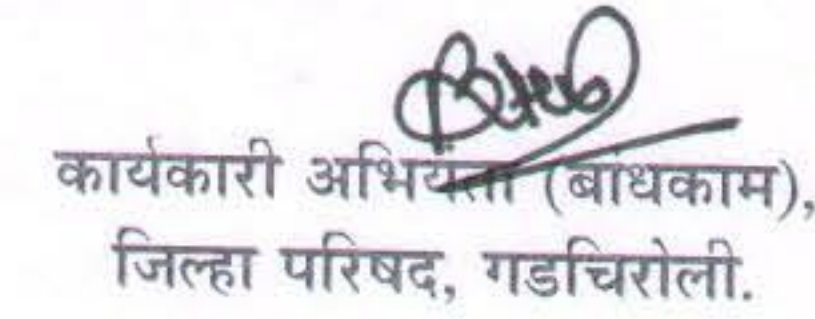 कार्यकारी अभियंता (बांधकाम),
जिल्हा परिषद, गडचिरोली.